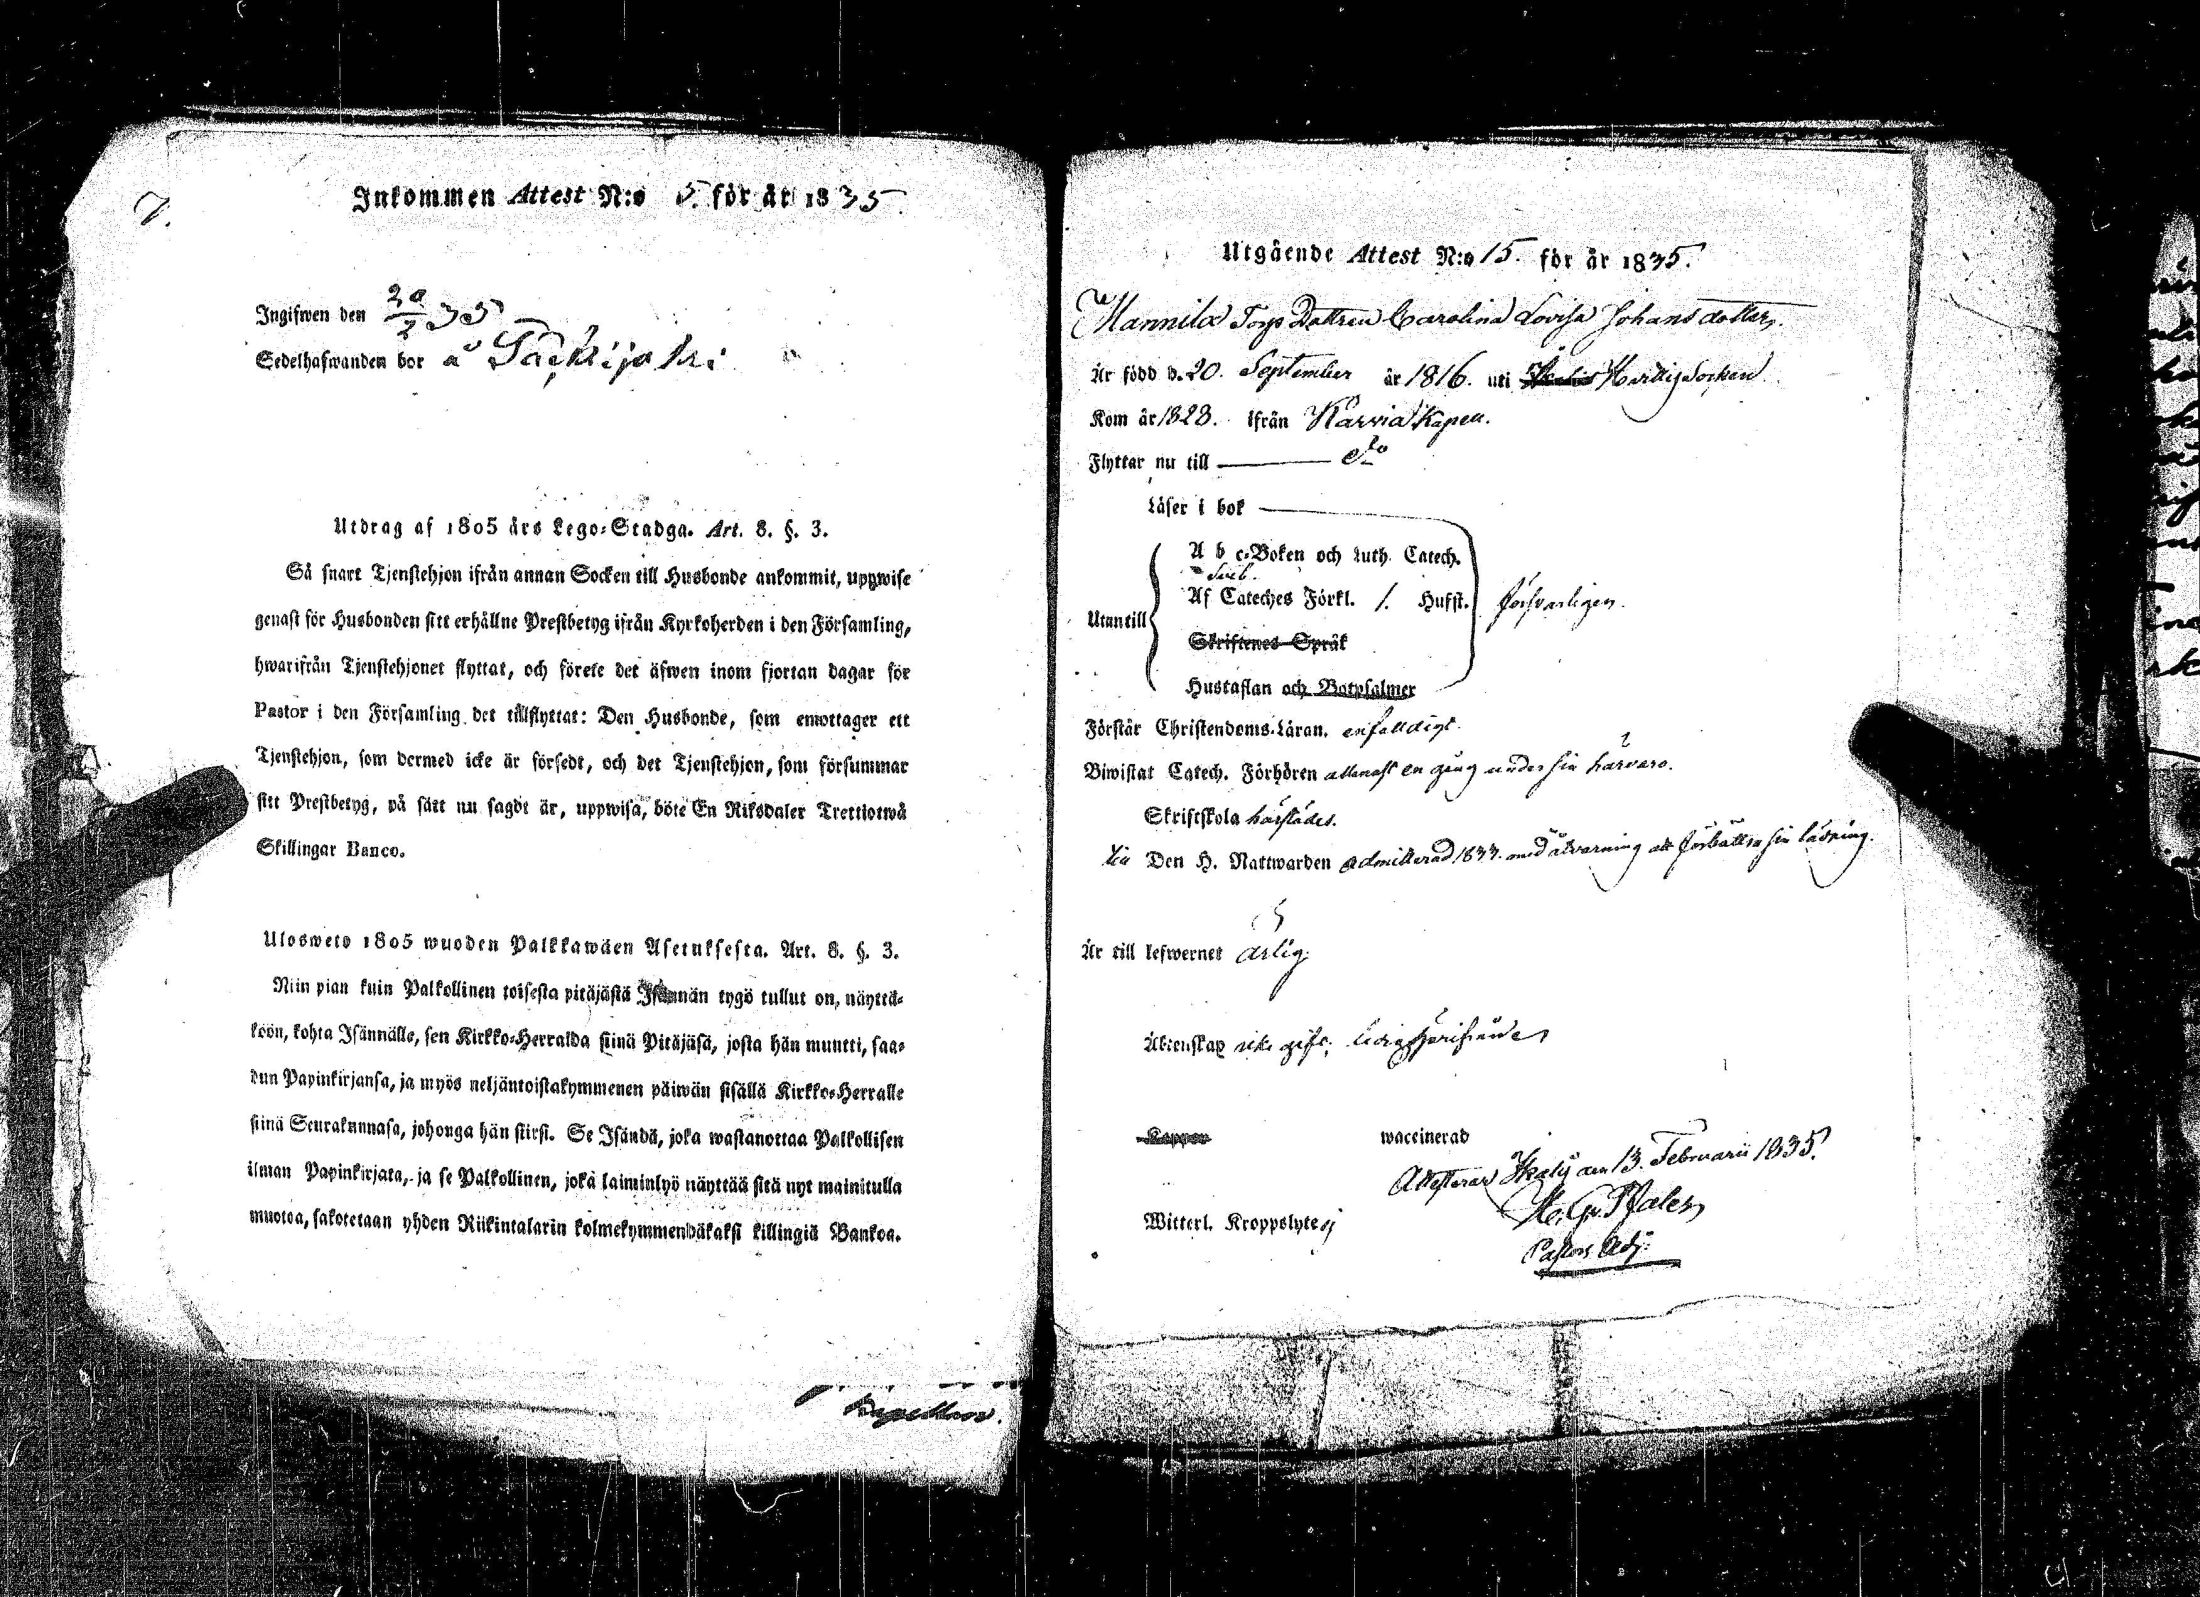 7.
Inkommen Attest N:o 5. för år 1835.
Ingifwen den 20/2 35
Sedelhafwanden bor å Säckijoki
Utdrag af 1805 års Lego-Stadga. Art. 8. §. 3.
Så snart Tjenstehjon ifrån annan Socken till Husbonde ankommit, uppwise
genast för Husbonden sitt erhållne Prestbetyg ifrån Kyrkoherden i den Församling,
hwarifrån Tjenstehjonet flyttat, och förete det äfwen inom fjortan dagar för
Pastor i den Församling det tillflyttat: Den Husbonde, som emottager ett
Tjenstehjon, som dermed icke är försedt, och det Tjenstehjon, som försummar
sitt Prestbetyg, på sätt nu sagdt är, uppwisa, böte En Riksdaler Trettiotwå
Skillingar Banco.
Uloswets 1805 wuoden Palkkawäen Asetuksesta. Art. 8. §. 3.
Niin pian kuin Palkollinen toisesta pitäjästä Isännän tygö tullut on, näyttä-
köön, kohta Isännälle, sen Kirkko-Herralda siinä Pitäjäsä, josta hän muutti, saa-
dun Papinkirjansa, ja myös neljäntoistakymmenen päiwän sisällä Kirkko-Herralle
siinä Seurakunnasa, johonga hän siirsi. Se Isändä, joka wastanottaa Palkollisen
ilman Papinkirjata, ja se Palkollinen, joka laiminlyö näyttää sitä nyt mainitulla
muotoa, sakotetaan yhden Riikintalarin kolmekymmendäkaksi killingiä Bankoa.
Kapellan.
Utgående Attest N:o 15. för år 1835.
Mannila Torp Dottren Carolina Lovisa Johansdotter,
Är född d. 20. September år 1816. uti Socken
Kom år 1828. ifrån Karvia Kapell.
Flyttar nu till do
Läser i bok
A b c-Boken och Luth. Catech.
Sveb.
Af Cateches Förkl. 1. Hufst. försvarligen.
Utantill
Skriftenes Språk
Hustaflan och Botpsalmer
Förstår Christendoms-Läran. enfalldigt.
Biwistat Catech. Förhören allenast en gång under sin härvaro.
Skriftskola härstädes.
till Den H. Nattwarden admitterad 1833. med åtvarning att förbättra sin läsning.
Är till lefwernet ärlig.
Äktenskap icke gift;
Koppor waccinerad
Attesterar Ikalis den 13. Februarii 1835.
Witterl. Kroppslyte ej
Pastors Adj: